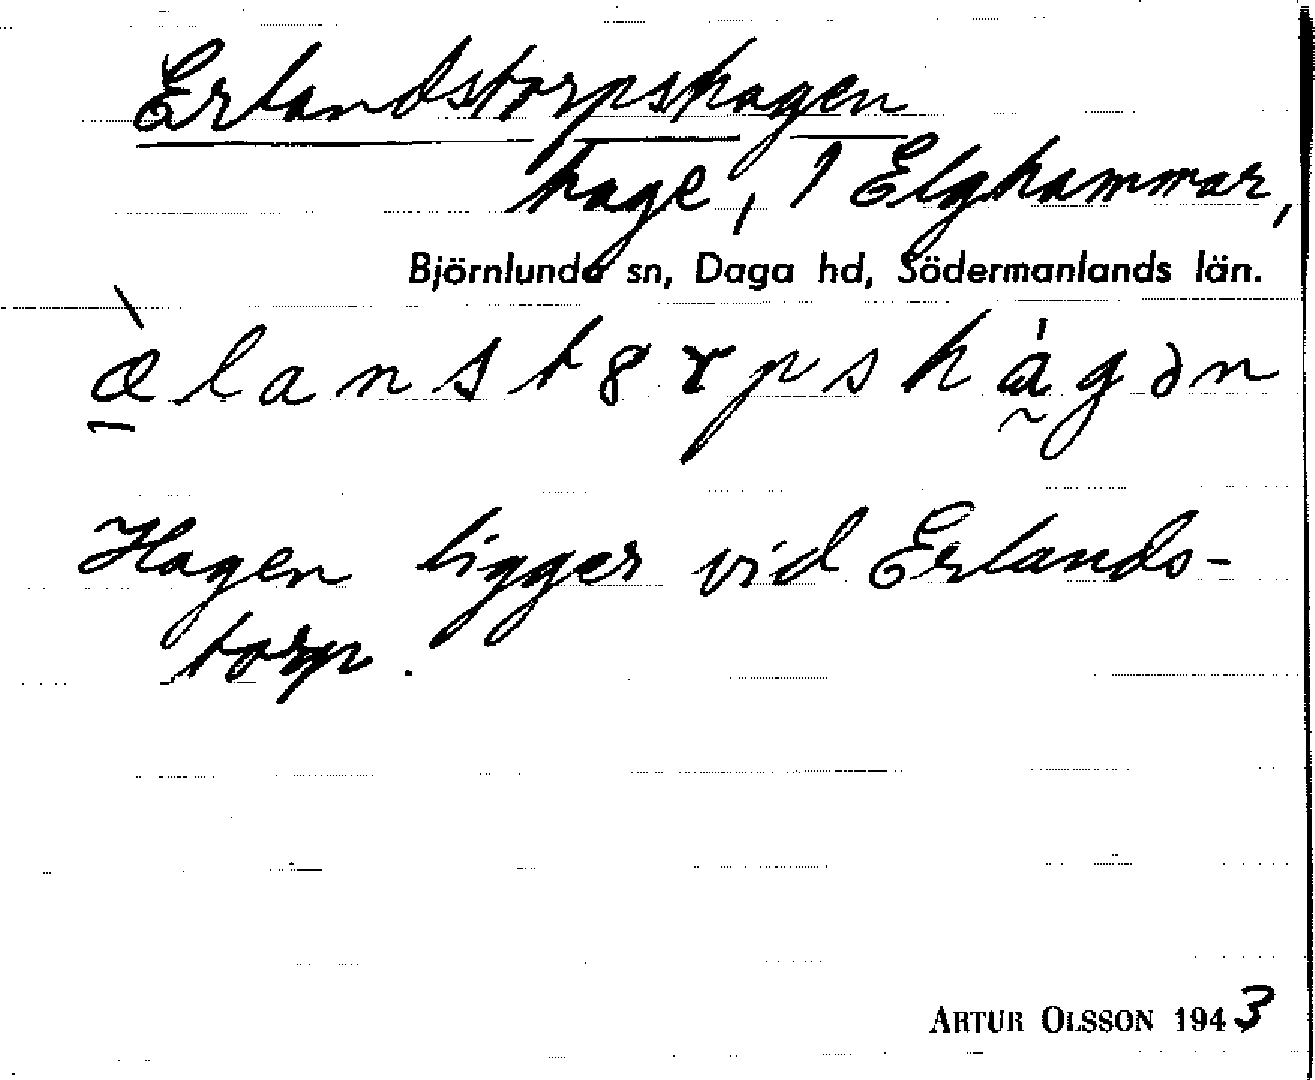 Erlandstorpshagen
hage, 1 Elghammar,
Björnlunda sn, Daga hd, Södermanlands län.
æ̠̀lanst8rpshá̰gən
Hagen ligger vid Erlands-
torp.
ARTUR OLSSON 1943